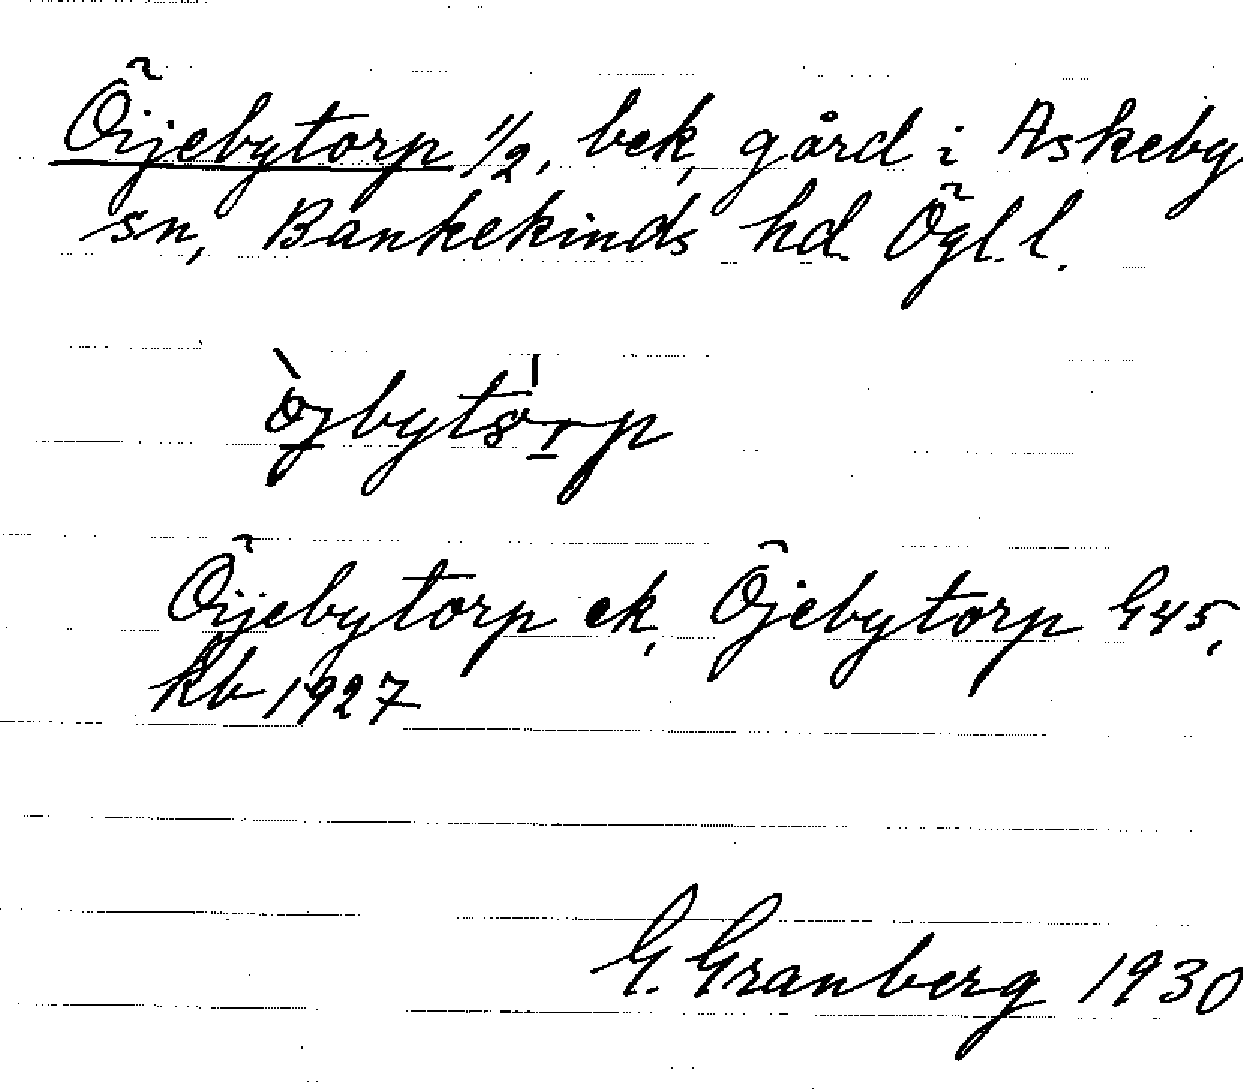 Öijebytorp 1/2, bek, gård i Askeby
sn, Bankekinds hd. Ögl. l.
ö̀jbytörp
Öijebytorp ek, Öjebytorp G45,
kb 1927
G. Granberg 1930